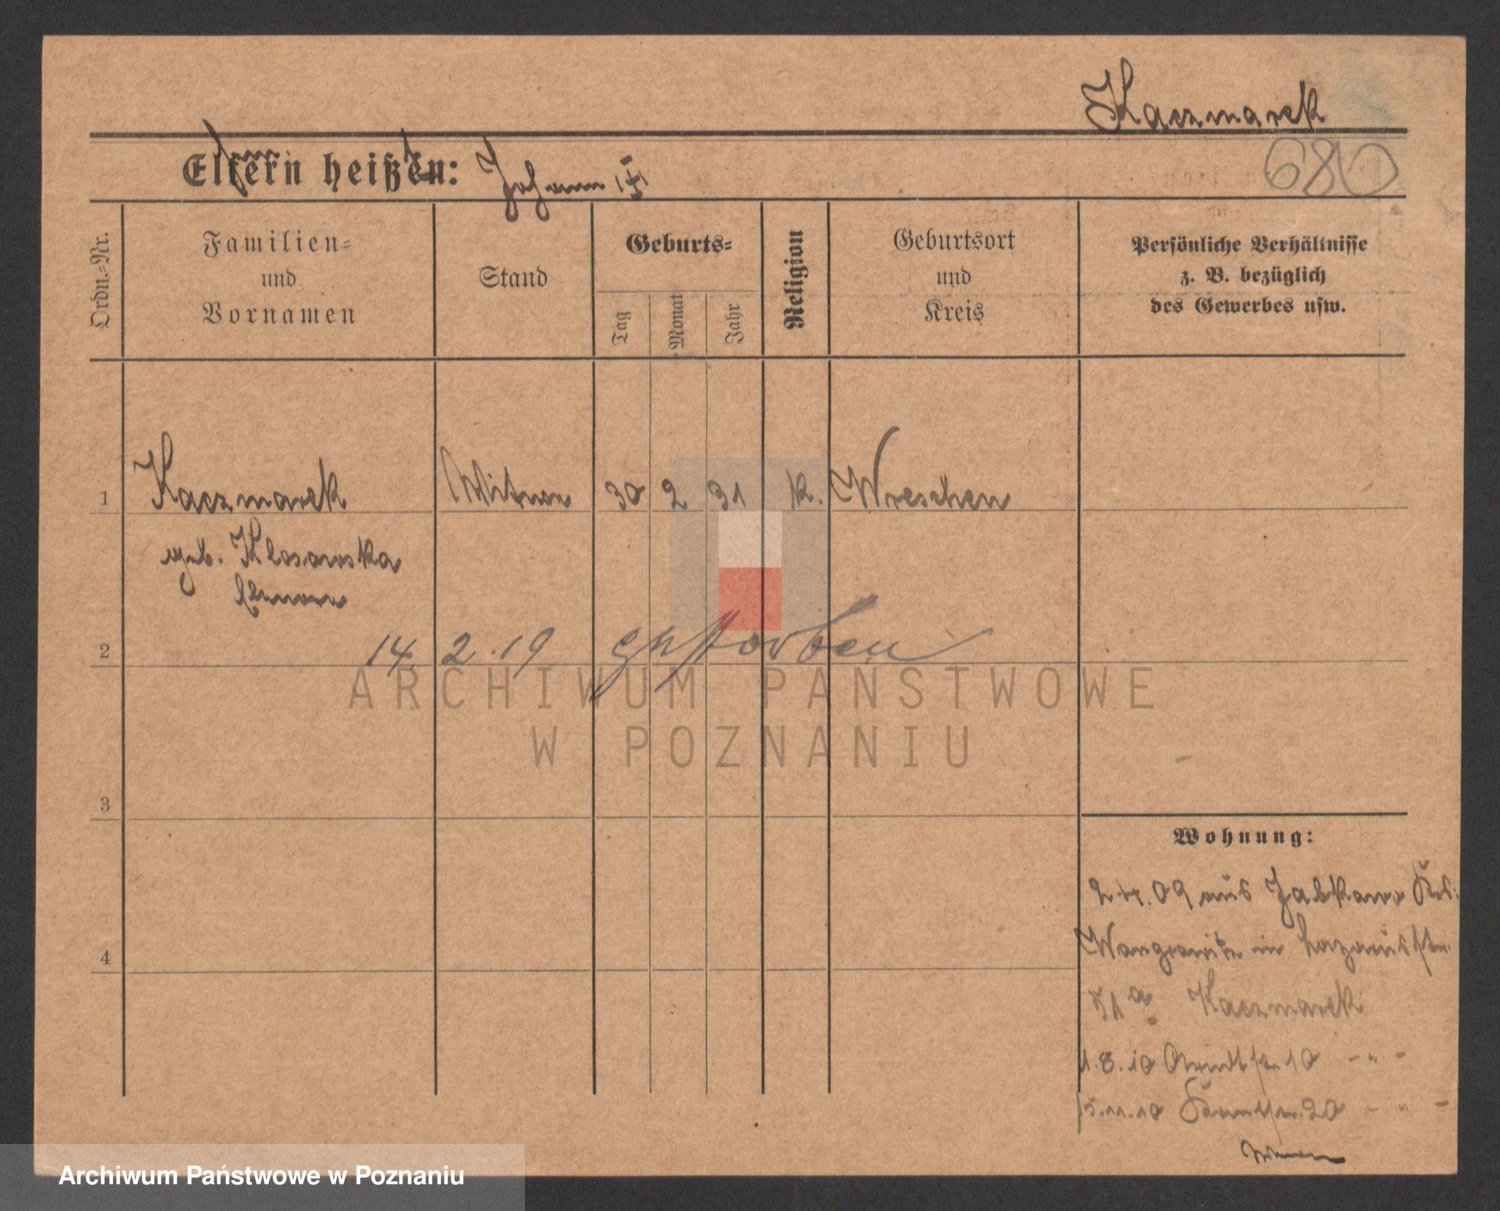 Kaczmarek
680
Eltern heißen: Johann
Ordn.-Nr.
Familien-
und
Vornamen
Stand
Geburts-
Tag
Monat
Jahr
Religion
Geburtsort
und
Kreis
Persönliche Verhältnisse
z. B. bezüglich
des Gewerbes usw.
1 Kaczmarek Witwe 30 2 31 k. Wreschen
geb. Klosowska
2 14. 2. 19 gestorben
ARCHIWUM PAŃSTWOWE
W POZNANIU
3
Wohnung:
4
2.4.09 aus Jabkowo
in
51a Kaczmarek
1.8.10 10 - " -
15.11.10 20 - " -
Archiwum Państwowe w Poznaniu